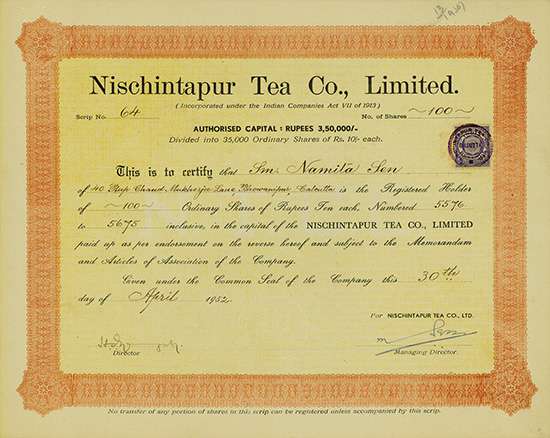 Nischintapur Tea Co., Limited.
(Incorporated under the Indian Companies Act VII of 1913)
Scrip No. 64 No. of Shares ~100~
AUTHORISED CAPITAL : RUPEES 3,50,000/-
Divided into 35,000 Ordinary Shares of Rs. 10/- each.
This is to certify that Sm. Namita Sen
of 40 Rup Chand Mukherjee Lane, Bhowanipur, Calcutta is the Registered Holder
of ~100~ Ordinary Shares of Rupees Ten each, Numbered 5576
to 5675 inclusive, in the capital of the NISCHINTAPUR TEA CO., LIMITED
paid up as per endorsement on the reverse hereof and subject to the Memorandum
and Articles of Association of the Company.
Given under the Common Seal of the Company this 30th
day of April 1952.
For NISCHINTAPUR TEA CO., LTD.
Sen
Director Managing Director.
No transfer of any portion of shares in this scrip can be registered unless accompanied by this scrip.